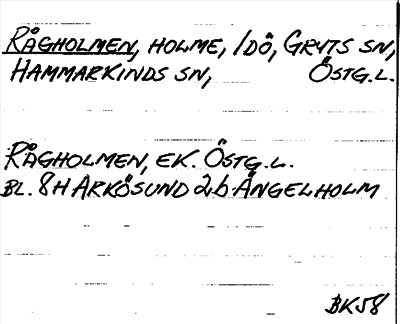 RÅGHOLMEN, HOLME, IDÖ, GRYTS SN,
HAMMARKINDS SN, ÖSTG.L.
RÅGHOLMEN, EK. ÖSTG.L.
BL. 8H ARKÖSUND 2b ÄNGELHOLM
BK58